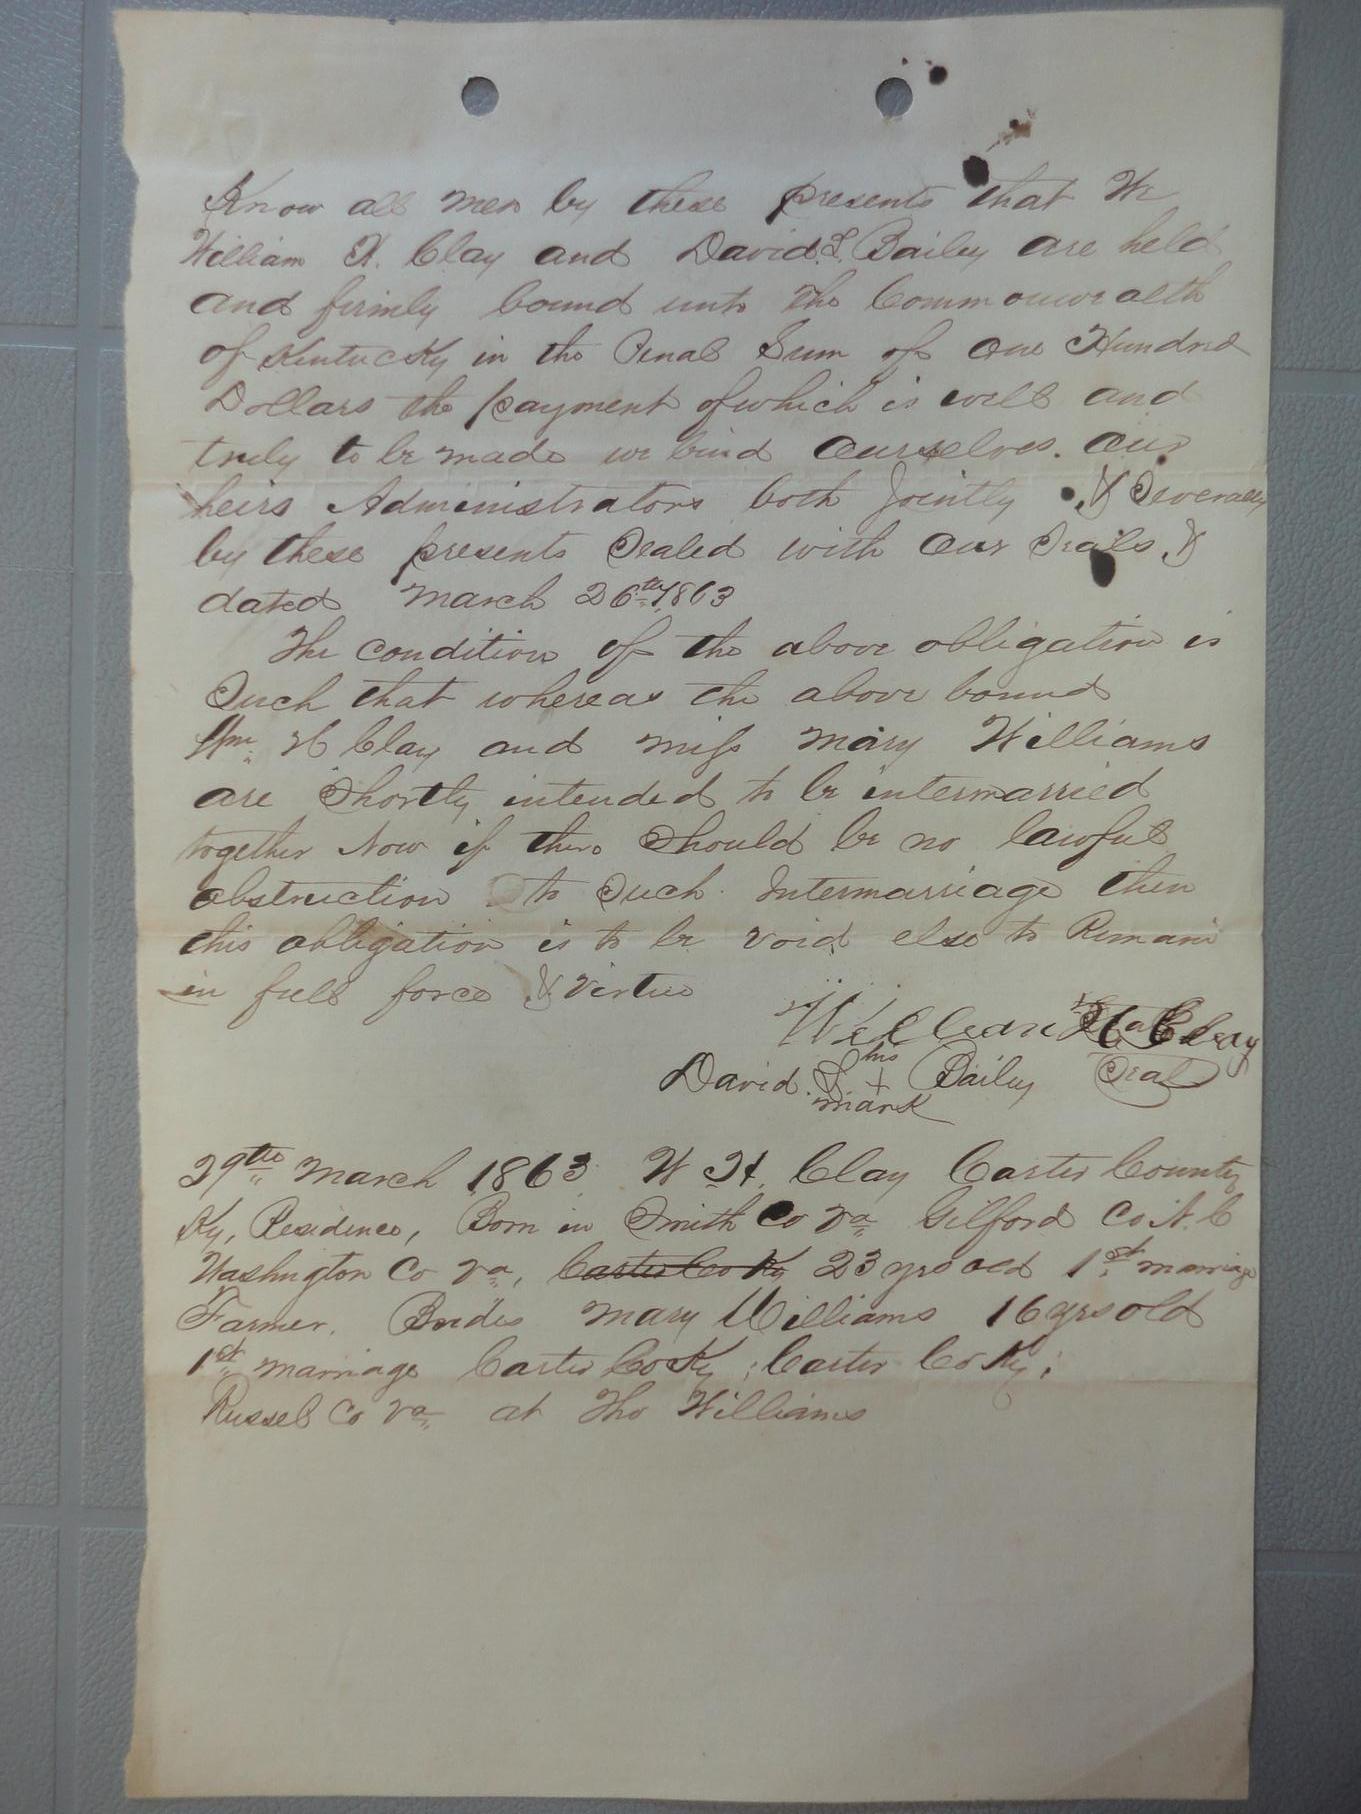 Know all men by these presents that We
William H. Clay and David. L. Bailey are held
and firmly bound unto the Commonwealth
of Kentucky in the Penal Sum of one Hundred
Dollars the payment of which is well and
truly to be made we bind ourselves. our
heirs Administrators both Jointly & Severally
by these presents Sealed with our Seals &
dated March 26th 1863
The condition of the above obligation is
Such that whereas the above bound
Wm H Clay and miss Mary Williams
are Shortly intended to be intermarried
together Now if there Should be no lawful
obstruction to Such Intermarriage then
this obligation is to be void else to Remain
in full force & virtue
William H Clay Seal
David. L. his + mark Bailey Seal
29th March 1863 W H. Clay Carter County
Ky, Residence, Born in Smith Co Va Gilford Co N. C
Washington Co Va, Carter Co Ky 23 yrs old 1st marriage
Farmer. Brides Mary Williams 16 yrs old
1st marriage Carter Co Ky; Carter Co Ky;
Russel Co Va at Tho Williams